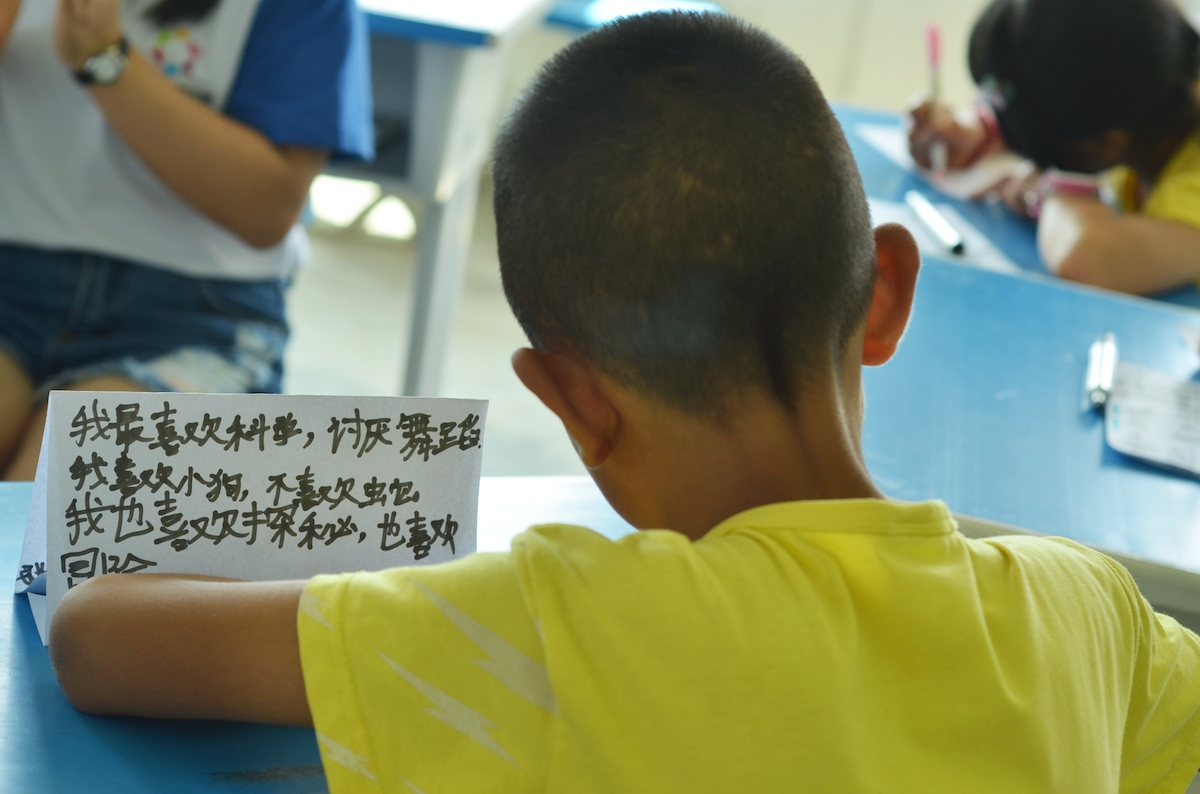 我最喜欢科学，讨厌舞蹈.
我喜欢小狗，不喜欢虫它。
我也喜欢探秘，也喜欢
冒险